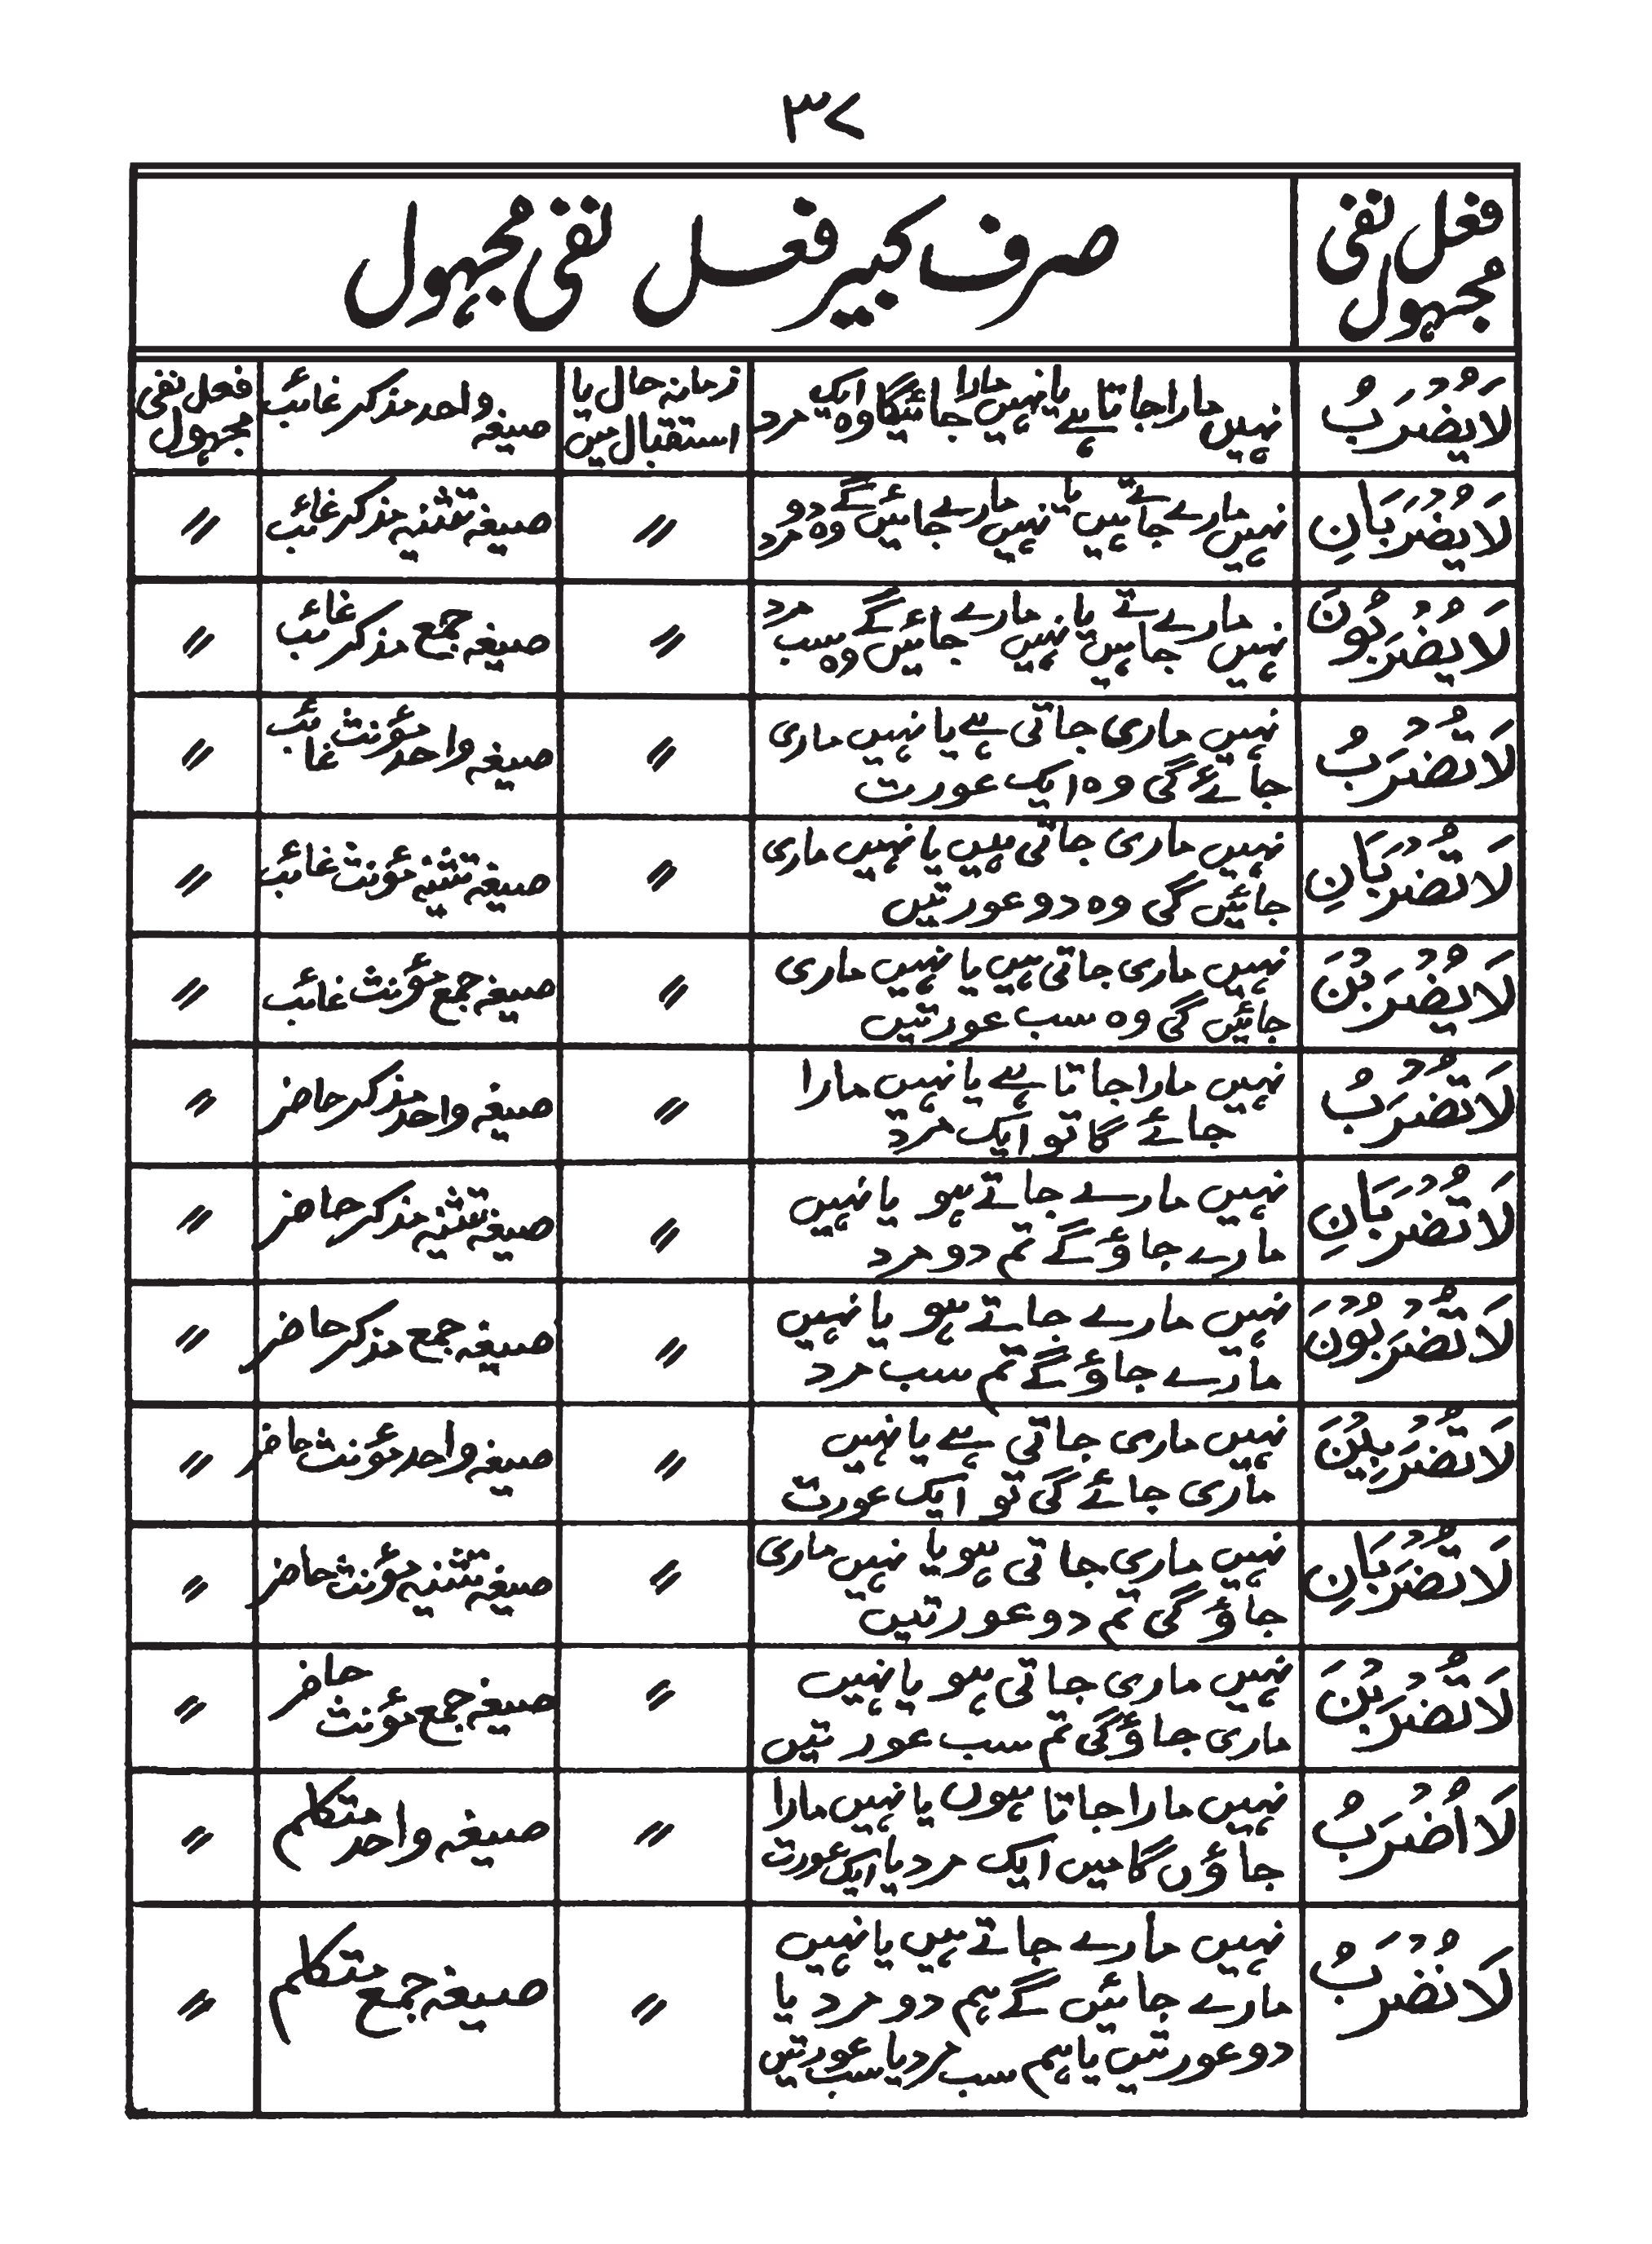 ۳۷
فعل نفی
مجہول
صرف کبیر فعل نفی مجہول
لَا یُضْرَبُ
نہیں مارا جاتا ہے یا نہیں مارا جائیگا وہ ایک مرد
زمانہ حال یا
استقبال میں
صیغہ واحد مذکر غائب
فعل نفی
مجہول
لَا یُضْرَبَانِ
نہیں مارے جاتے ہیں یا نہیں مارے جائیں گے وہ دو مرد
〃
صیغہ تثنیہ مذکر غائب
〃
لَا یُضْرَبُونَ
نہیں مارے جاتے ہیں یا نہیں مارے جائیں گے وہ سب مرد
〃
صیغہ جمع مذکر غائب
〃
لَا تُضْرَبُ
نہیں ماری جاتی ہے یا نہیں ماری
جائے گی وہ ایک عورت
〃
صیغہ واحد مؤنث غائب
〃
لَا تُضْرَبَانِ
نہیں ماری جاتی ہیں یا نہیں ماری
جائیں گی وہ دو عورتیں
〃
صیغہ تثنیہ مؤنث غائب
〃
لَا یُضْرَبْنَ
نہیں ماری جاتی ہیں یا نہیں ماری
جائیں گی وہ سب عورتیں
〃
صیغہ جمع مؤنث غائب
〃
لَا تُضْرَبُ
نہیں مارا جاتا ہے یا نہیں مارا
جائے گا تو ایک مرد
〃
صیغہ واحد مذکر حاضر
〃
لَا تُضْرَبَانِ
نہیں مارے جاتے ہو یا نہیں
مارے جاؤ گے تم دو مرد
〃
صیغہ تثنیہ مذکر حاضر
〃
لَا تُضْرَبُونَ
نہیں مارے جاتے ہو یا نہیں
مارے جاؤ گے تم سب مرد
〃
صیغہ جمع مذکر حاضر
〃
لَا تُضْرَبِیْنَ
نہیں ماری جاتی ہے یا نہیں
ماری جائے گی تو ایک عورت
〃
صیغہ واحد مؤنث حاضر
〃
لَا تُضْرَبَانِ
نہیں ماری جاتی ہو یا نہیں ماری
جاؤ گی تم دو عورتیں
〃
صیغہ تثنیہ مؤنث حاضر
〃
لَا تُضْرَبْنَ
نہیں ماری جاتی ہو یا نہیں
ماری جاؤ گی تم سب عورتیں
〃
صیغہ جمع مؤنث حاضر
〃
لَا اُضْرَبُ
نہیں مارا جاتا ہوں یا نہیں مارا
جاؤں گا میں ایک مرد یا ایک عورت
〃
صیغہ واحد متکلم
〃
لَا نُضْرَبُ
نہیں مارے جاتے ہیں یا نہیں
مارے جائیں گے ہم دو مرد یا
دو عورتیں یا ہم سب مرد یا سب عورتیں
〃
صیغہ جمع متکلم
〃